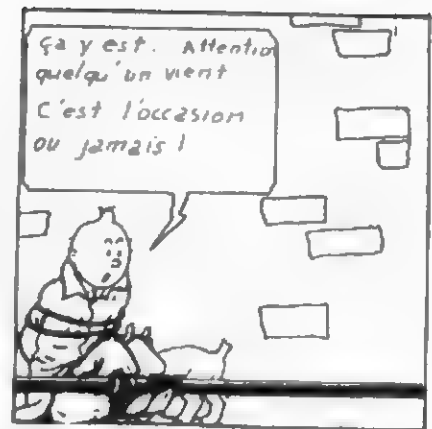 Ça y est. Attention
quelqu'un vient
C'est l'occasion
ou jamais !